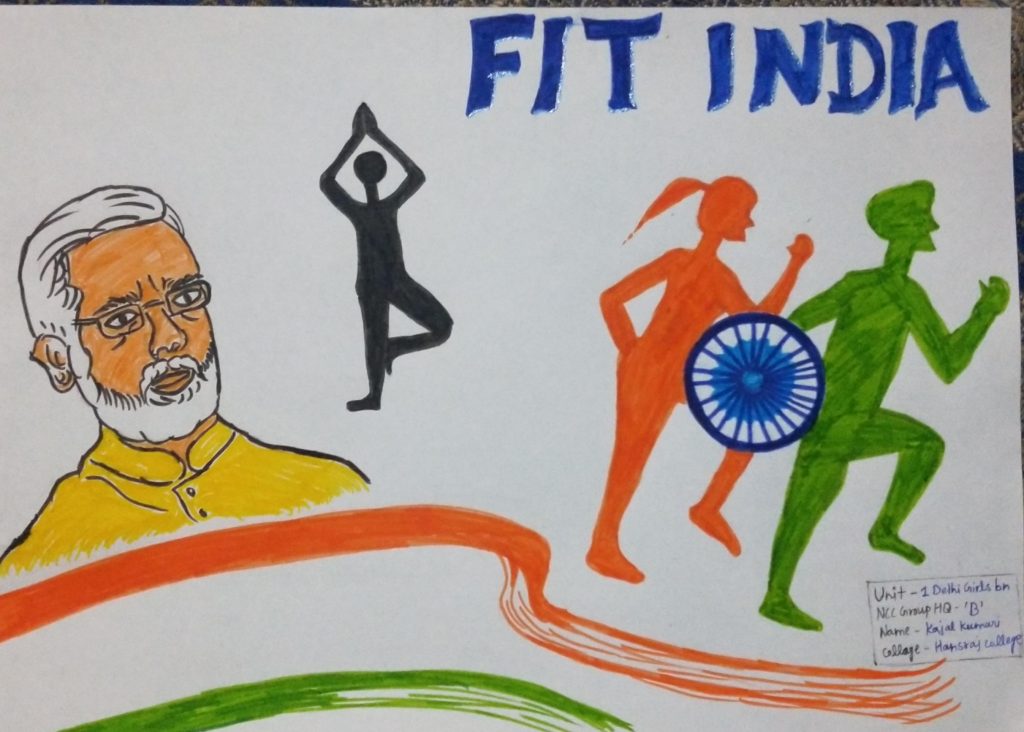 FIT INDIA
Unit - 1 Delhi Girls bn
NCC Group HQ - 'B'
Name - Kajal Kumari
Collage - Hansraj College